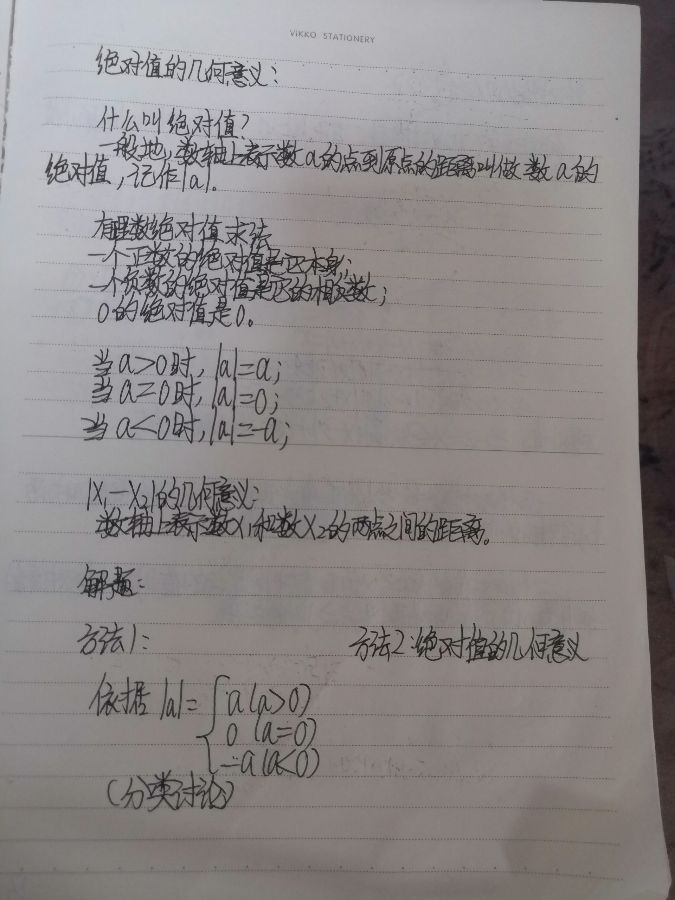 VIKKO STATIONERY
绝对值的几何意义：
什么叫绝对值？
一般地，数轴上表示数a的点到原点的距离叫做数a的
绝对值，记作|a|.
有理数绝对值求法
一个正数的绝对值是它本身；
一个负数的绝对值是它的相反数；
0的绝对值是0。
当a>0时，|a|=a；
当a=0时，|a|=0；
当a<0时，|a|=-a；
|X₁-X₂|的几何意义：
数轴上表示数X₁和数X₂的两点之间的距离。
解题：
方法1： 方法2：绝对值的几何意义
依据 |a|= { a (a>0)
0 (a=0)
-a (a<0)
(分类讨论)